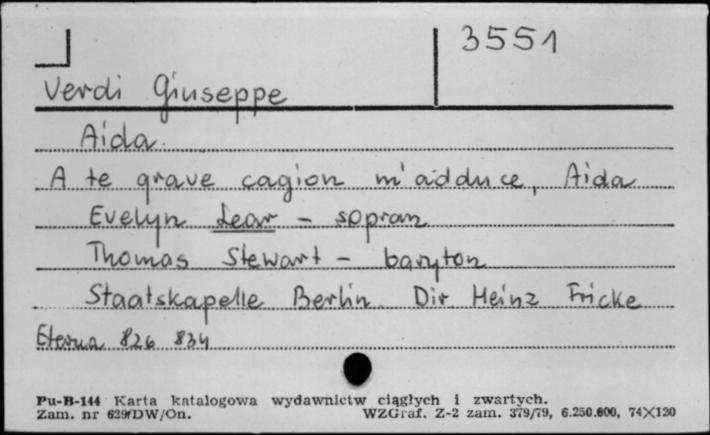 3551
Verdi Giuseppe
Aida
A te grave cagion m'adduce, Aida
Evelyn Lear - sopran
Thomas Stewart - baryton
Staatskapelle Berlin Dir Heinz Fricke
Eterna 826 834
Pu-B-144 Karta katalogowa wydawnictw ciągłych i zwartych.
Zam. nr 629/DW/On. WZGraf. Z-2 zam. 379/79, 6.250.600, 74X120